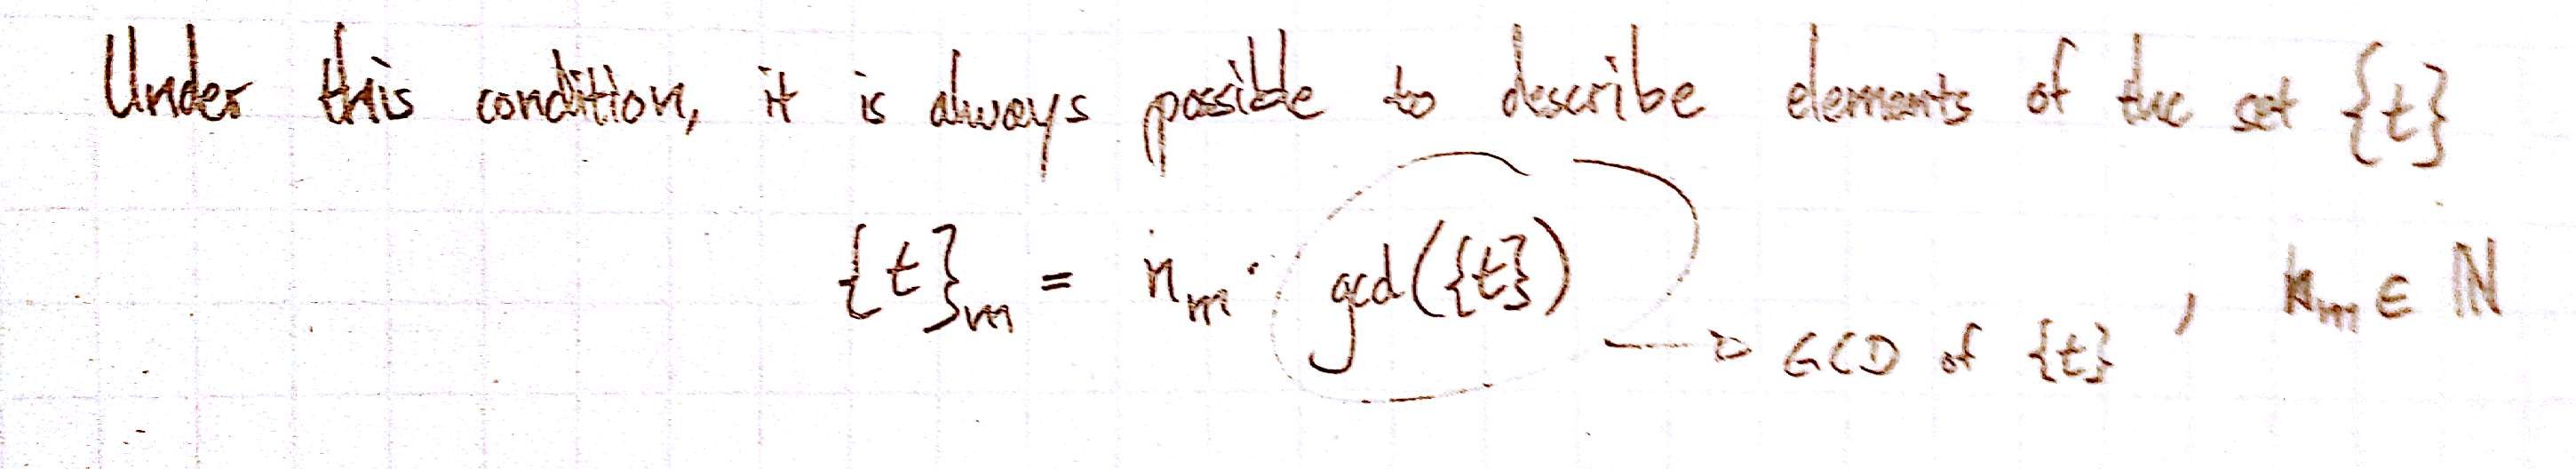 Under this condition, it is always possible to describe elements of the set {t}
{t}_m = n_m · gcd({t}) , n_m ∈ ℕ
→ GCD of {t}